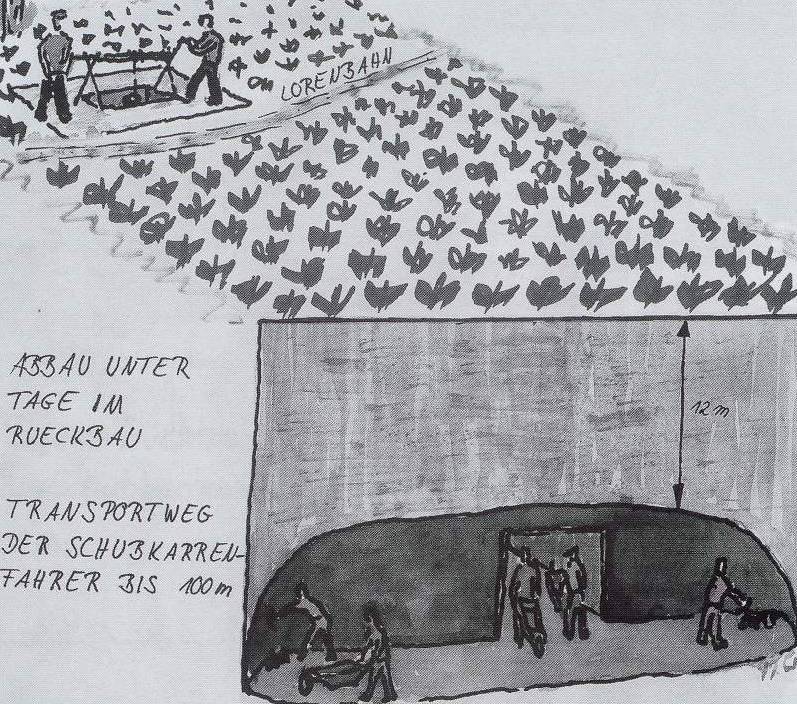 LORENBAHN
ABBAU UNTER
TAGE IM
RUECKBAU
12 m
TRANSPORTWEG
DER SCHUBKARREN-
FAHRER BIS 100 m